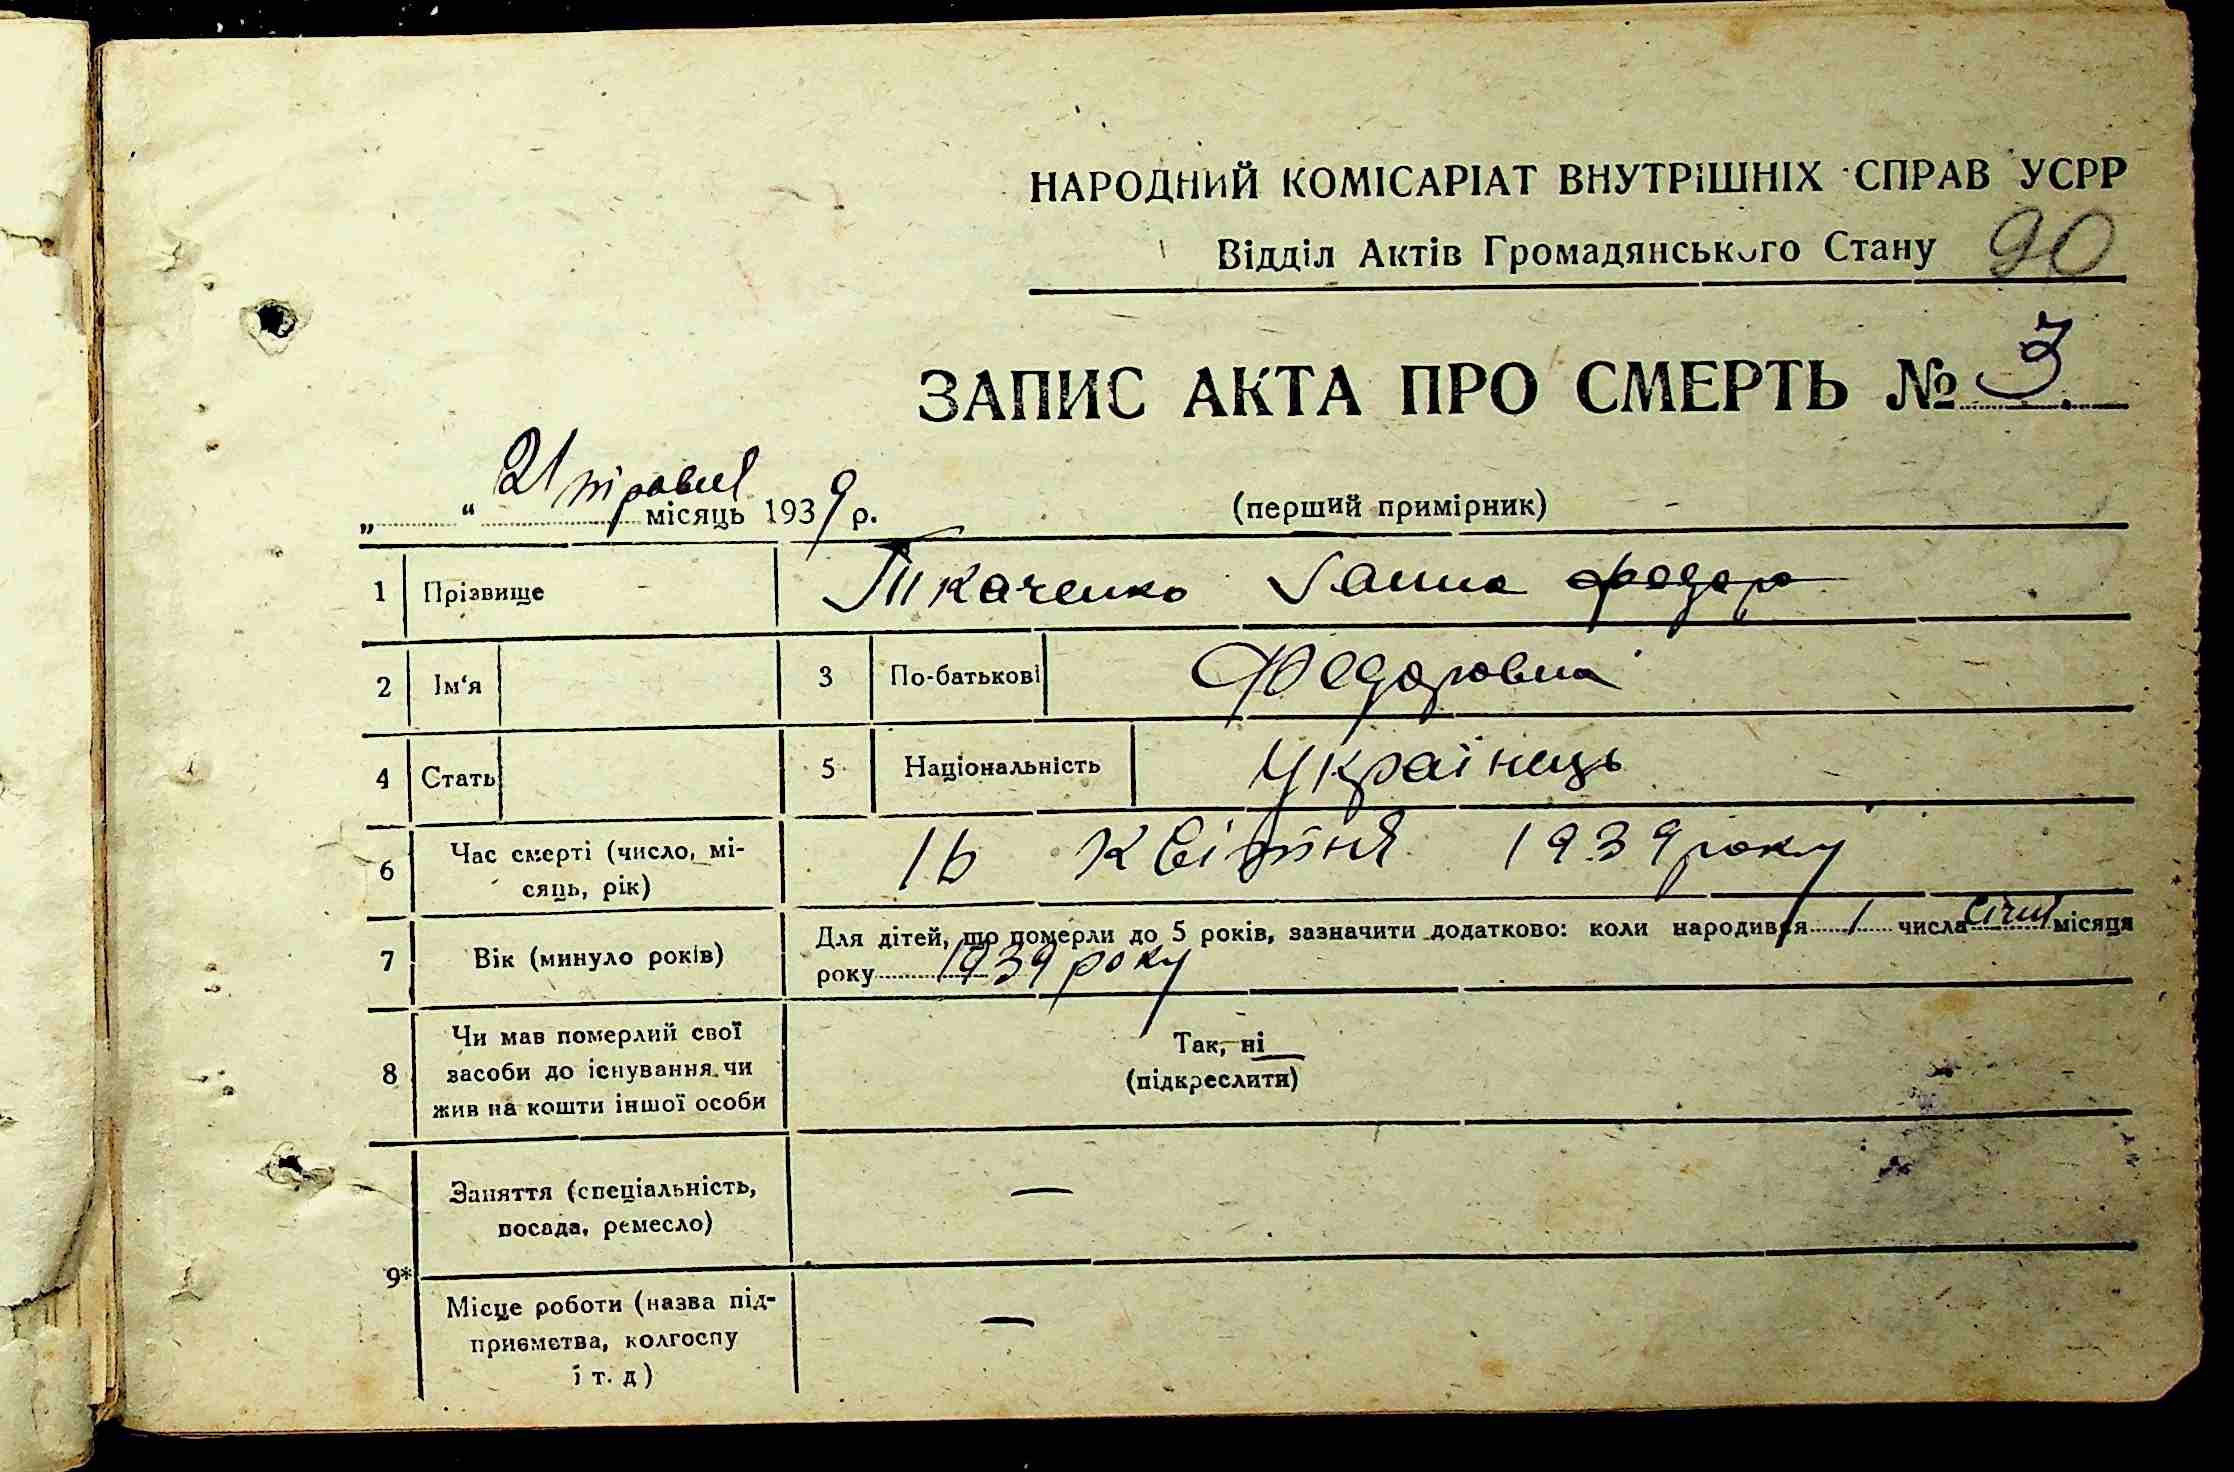 НАРОДНИЙ КОМІСАРІАТ ВНУТРІШНІХ СПРАВ УСРР
Відділ Актів Громадянського Стану 90
ЗАПИС АКТА ПРО СМЕРТЬ № 3
„ “ 21 травня місяць 1939 р. (перший примірник)
1 Прізвище Ткаченко Ганна федоро
2 Ім‘я 3 По-батькові Федоровна
4 Стать 5 Національність Українець
6 Час смерті (число, мі-
сяць, рік) 16 Квітня 1939 року
7 Вік (минуло років) Для дітей, що померли до 5 років, зазначити додатково: коли народився 1 числа Січня місяця
року 1939 року
8 Чи мав померлий свої
засоби до існування чи
жив на кошти іншої особи
Так, ні
(підкреслити)
Заняття (спеціальність,
посада, ремесло) —
9*
Місце роботи (назва під-
приємства, колгоспу
і т. д) —